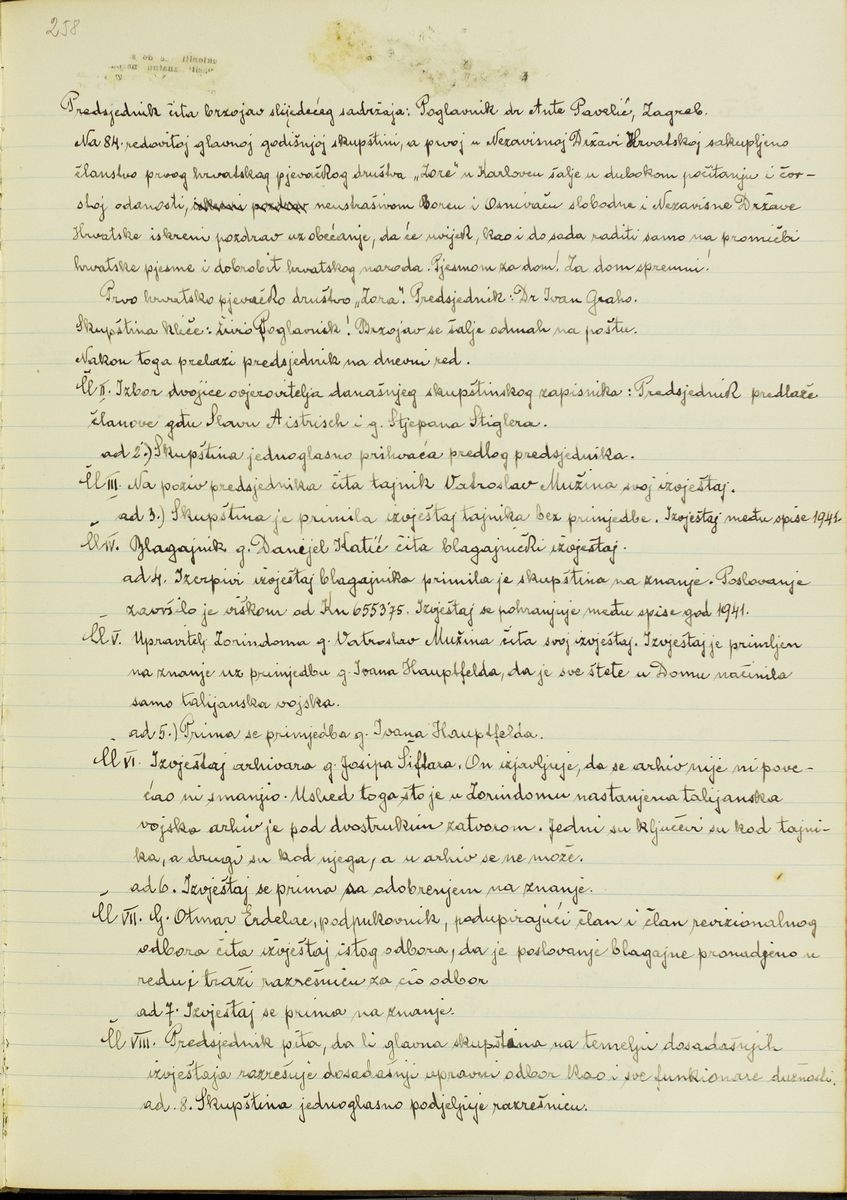 258
Predsjednik čita brzojav slijedećeg sadržaja: Poglavnik dr Ante Pavelić, Zagreb.
Na 84. redovitoj glavnoj godišnjoj skupštini, a prvoj u Nezavisnoj Državi Hrvatskoj sakupljeno
članstvo prvog hrvatskog pjevačkog društva „Zore" u Karlovcu šalje u dubokom počitanju i čvr-
stoj odanosti, iskreni pozdrav neustrašivom Borcu i Osnivaču slobodne i Nezavisne Države
Hrvatske iskreni pozdrav uz obećanje, da će uvijek, kao i do sada raditi samo na promičbi
hrvatske pjesme i dobrobit hrvatskog naroda. Pjesmom za dom! Za dom spremni!
Prvo hrvatsko pjevačko društvo „Zora". Predsjednik: Dr Ivan Graho.
Skupština kliče: živio Poglavnik! Brzojav se šalje odmah na poštu.
Nakon toga prelazi predsjednik na dnevni red.
Čl II. Izbor dvojice ovjerovitelja današnjeg skupštinskog zapisnika: Predsjednik predlaže
članove gđu Slavu Aistrisch i g. Stjepana Stiglera.
ad 2.) Skupština jednoglasno prihvaća predlog predsjednika.
Čl III. Na poziv predsjednika čita tajnik Vatroslav Mužina svoj izvještaj.
ad 3.) Skupština je primila izvještaj tajnika bez primjedbe. Izvještaj među spise 1941.
Čl IV. Blagajnik g. Danijel Katić čita blagajnički izvještaj.
ad 4. Izcrpivi izvještaj blagajnika primila je skupština na znanje. Poslovanje
završilo je viškom od Kn 655375. Izvještaj se pohranjuje među spise god 1941.
Čl V. Upravitelj Zorindoma g. Vatroslav Mužina čita svoj izvještaj. Izvještaj je primljen
na znanje uz primjedbu g. Ivana Hauptfelda, da je sve štete u Domu načinila
samo talijanska vojska.
ad 5.) Prima se primjedba g. Ivana Hauptfelda.
Čl VI. Izvještaj arhivara g. Josipa Šiftara. On izjavljuje, da se arhiv nije ni pove-
ćao ni smanjio. Usled toga što je u Zorindomu nastanjena talijanska
vojska arhiv je pod dvostrukim zatvorom. Jedni su ključevi su kod tajni-
ka, a drugi su kod njega, a u arhiv se ne može.
ad 6. Izvještaj se prima sa odobrenjem na znanje.
Čl VII. G. Otmar Erdelac, podpukovnik, podupirajući član i član revizionalnog
odbora čita izvještaj istog odbora, da je poslovanje blagajne pronadjeno u
redu i traži razrešnicu za cio odbor
ad 7. Izvještaj se prima na znanje.
Čl VIII. Predsjednik pita, da li glavna skupština na temelju dosadašnjih
izvještaja razrešuje dosadašnji upravni odbor kao i sve funkionare dužnosti.
ad. 8. Skupština jednoglasno podjeljuje razrešnicu.